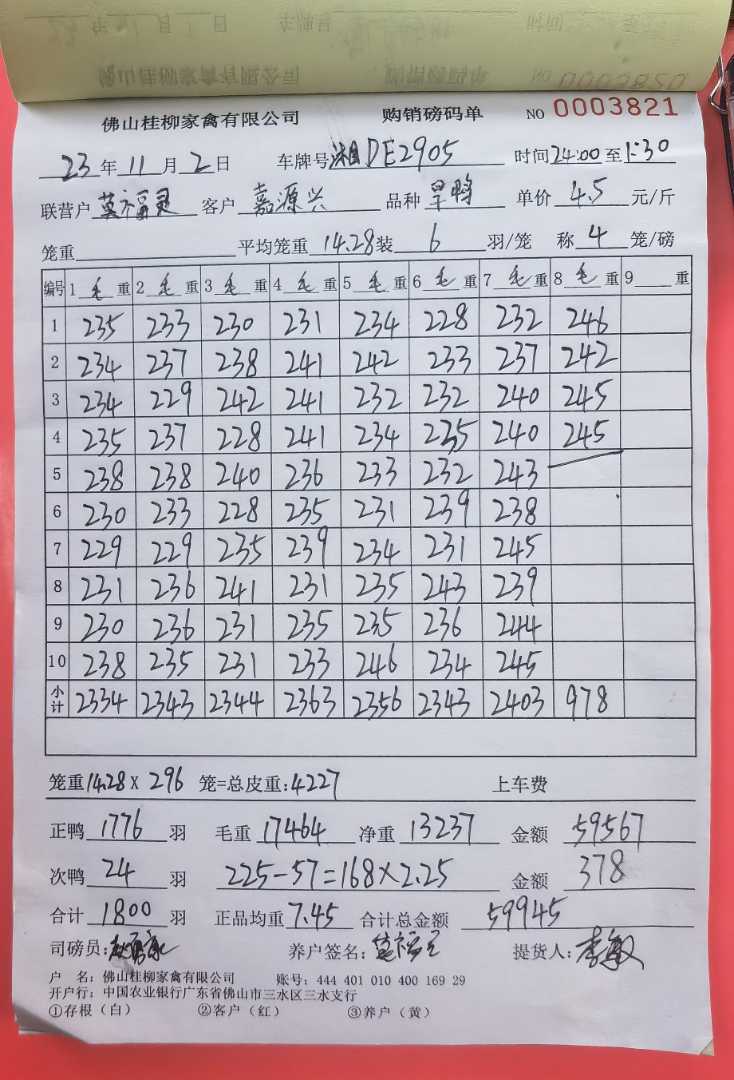 佛山桂柳家禽有限公司 购销磅码单 NO 0003821
23年11月2日 车牌号湘DE2905 时间24:00至1:30
联营户莫福灵 客户嘉源兴 品种旱鸭 单价4.5元/斤
笼重 平均笼重14.28装6羽/笼 称4笼/磅
编号 1毛重 2毛重 3毛重 4毛重 5毛重 6毛重 7毛重 8毛重 9重
1 235 233 230 231 234 228 232 246
2 234 237 238 241 242 233 237 242
3 234 229 242 241 232 232 240 245
4 235 237 228 241 234 235 240 245
5 238 238 240 236 233 232 243
6 230 233 228 235 231 239 238
7 229 229 235 239 234 231 245
8 231 236 241 231 235 243 239
9 230 236 231 235 235 236 244
10 238 235 231 233 246 234 245
小计 2334 2343 2344 2363 2356 2343 2403 978
笼重14.28×296笼=总皮重:4227 上车费
正鸭1776羽 毛重17464 净重13237 金额59567
次鸭24羽 225-57=168×2.25 金额378
合计1800羽 正品均重7.45 合计总金额59945
司磅员: 养户签名:莫福灵 提货人:李敏
户 名:佛山桂柳家禽有限公司 账号:444 401 010 400 169 29
开户行:中国农业银行广东省佛山市三水区三水支行
①存根（白） ②客户（红） ③养户（黄）